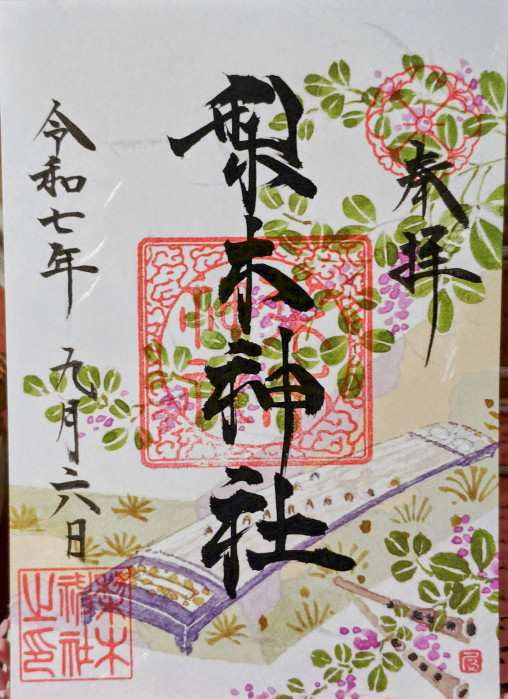 奉拝
梨木神社
令和七年 九月六日
梨木
神社
之印